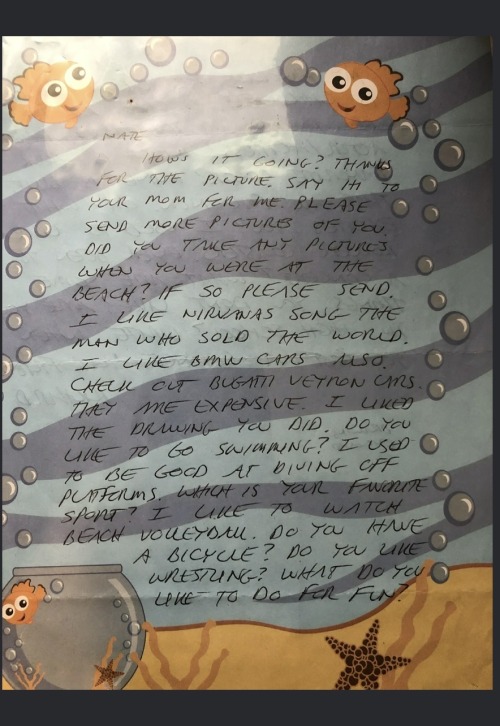 NATE
HOW'S IT GOING? THANKS
FOR THE PICTURE. SAY HI TO
YOUR MOM FOR ME. PLEASE
SEND MORE PICTURES OF YOU.
DID YOU TAKE ANY PICTURES
WHEN YOU WERE AT THE
BEACH? IF SO PLEASE SEND.
I LIKE NIRVANAS SONG THE
MAN WHO SOLD THE WORLD.
I LIKE BMW CARS ALSO.
CHECK OUT BUGATTI VEYRON CARS.
THEY ARE EXPENSIVE. I LIKED
THE DRAWING YOU DID. DO YOU
LIKE TO GO SWIMMING? I USED
TO BE GOOD AT DIVING OFF
PLATFORMS. WHICH IS YOUR FAVORITE
SPORT? I LIKE TO WATCH
BEACH VOLLEYBALL. DO YOU HAVE
A BICYCLE? DO YOU LIKE
WRESTLING? WHAT DO YOU
LIKE TO DO FOR FUN?